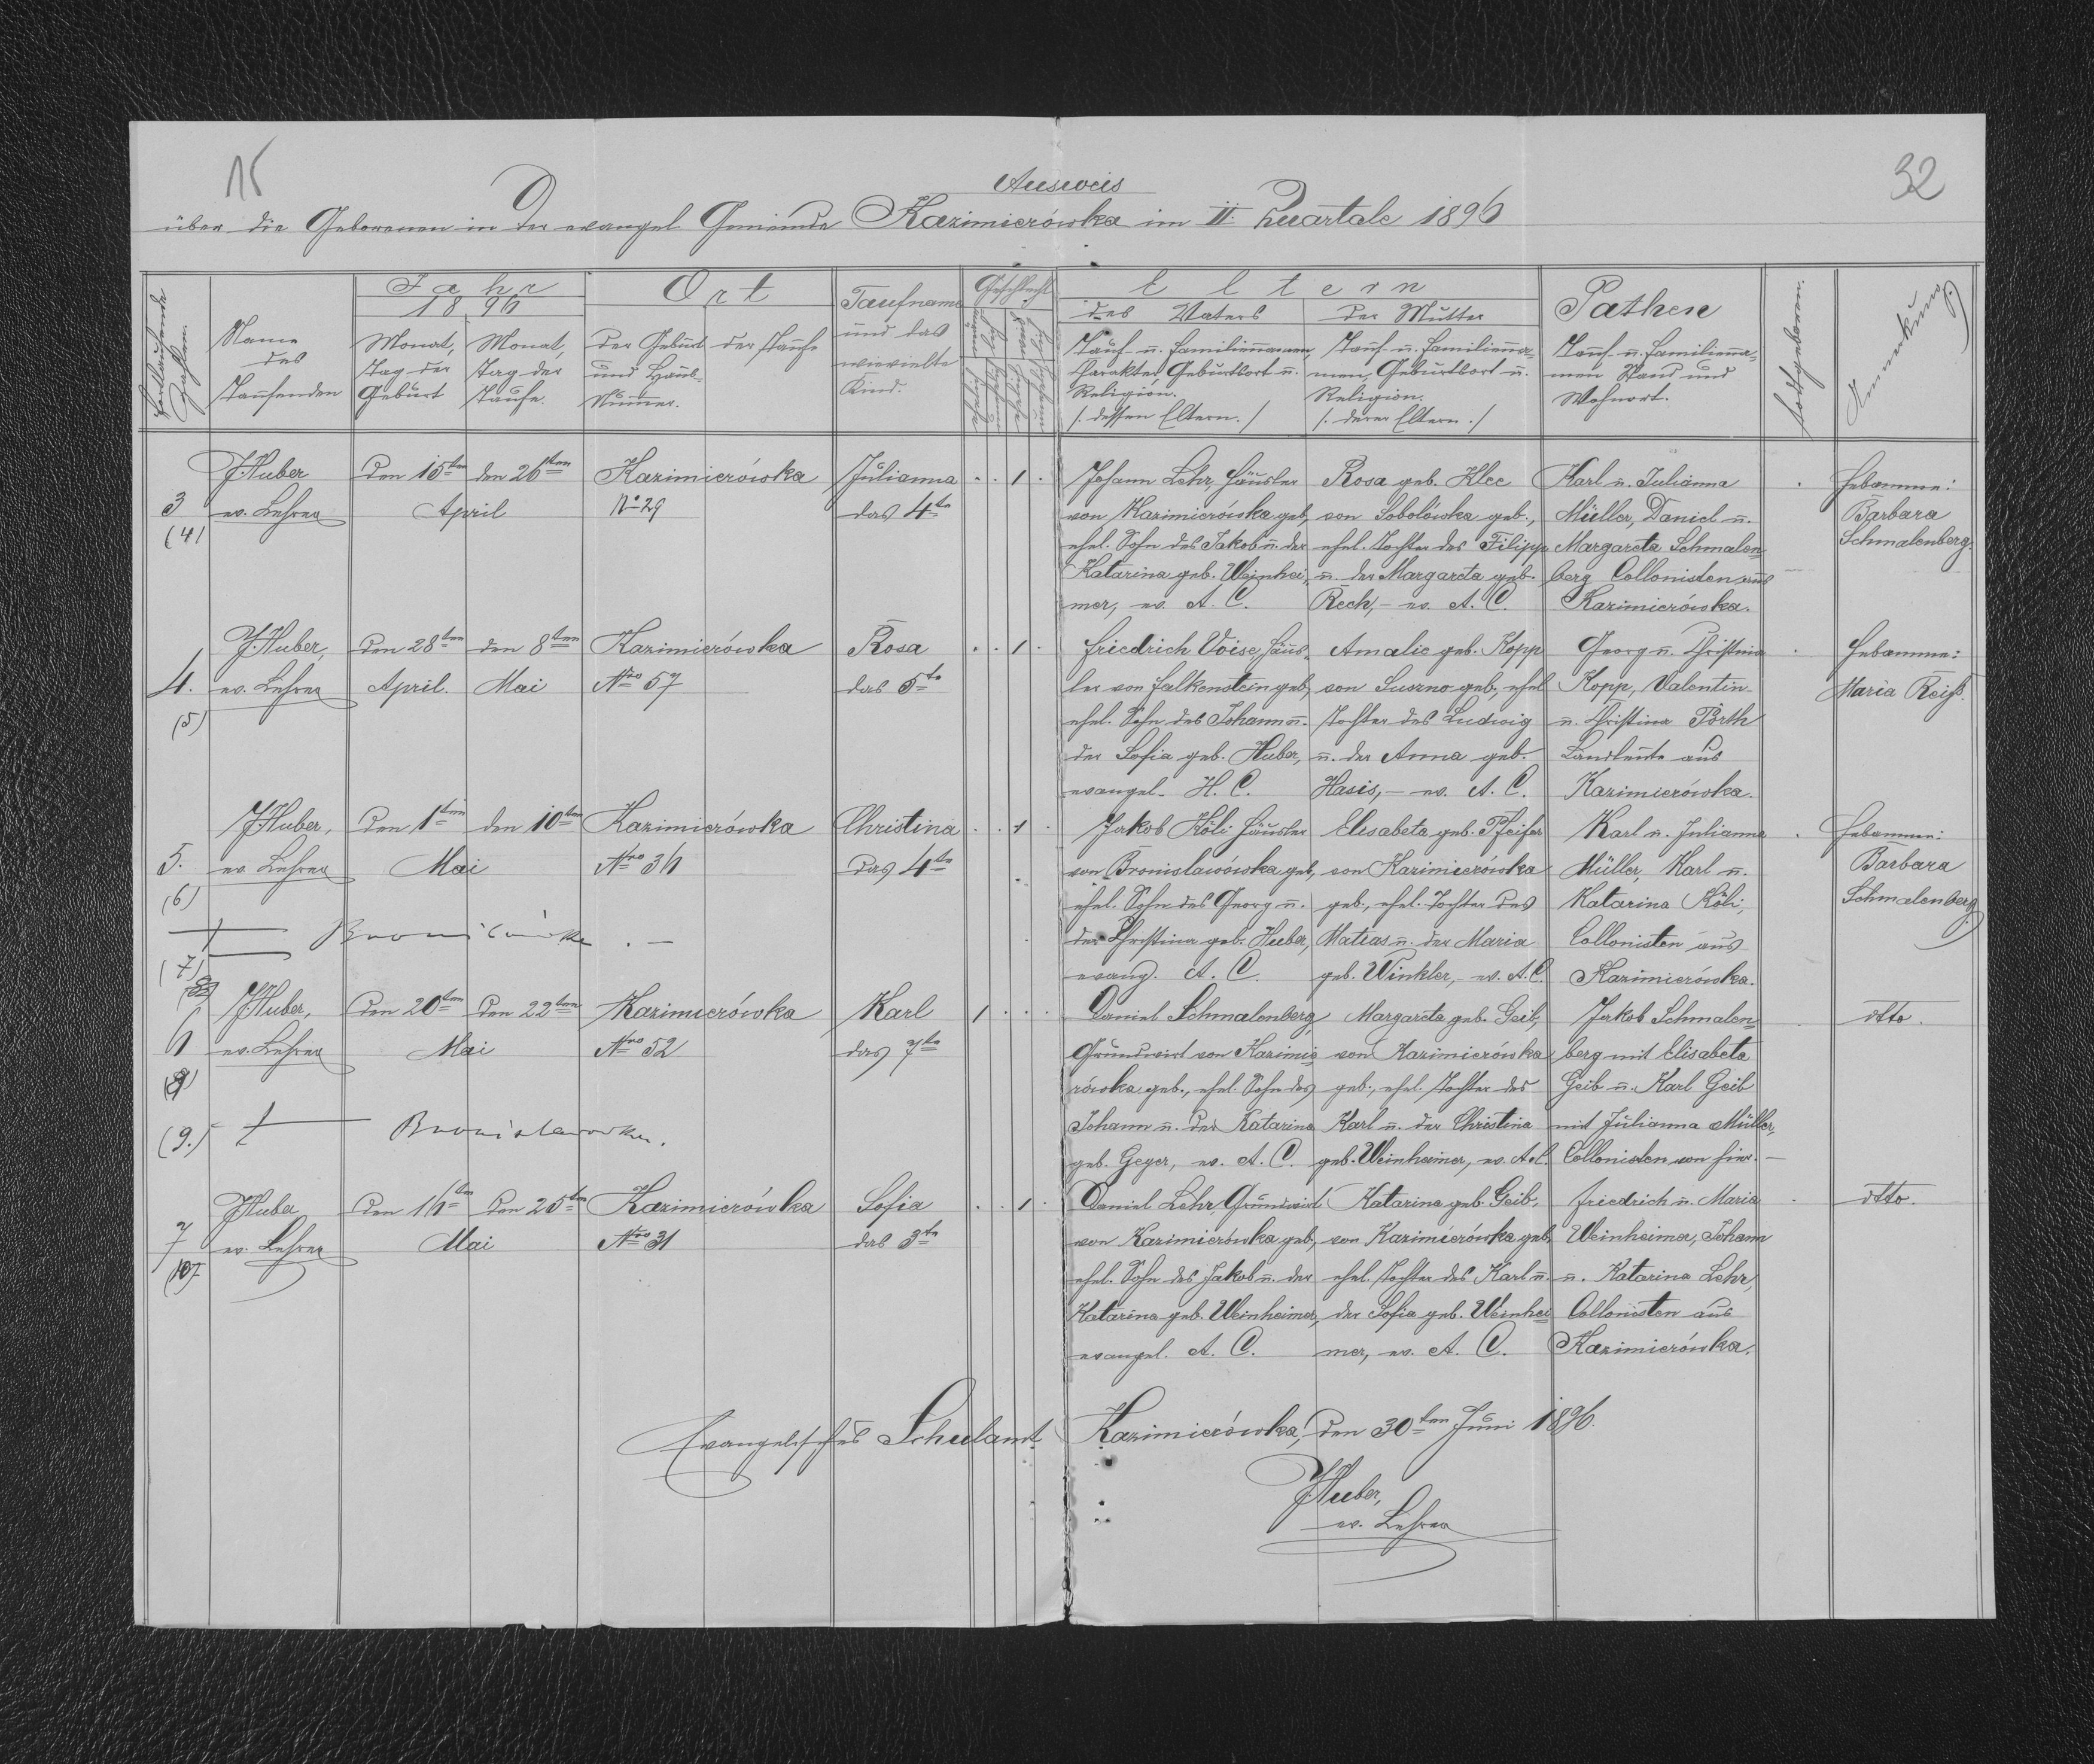 15
32
Ausweis
über die Geborenen in der evangel. Gemeinde Kazimierówka im II. Quartale 1896
Fortlaufende Zahlen
Name des Taufenden
Jahr 1896
Monat, Tag der Geburt
Monat, Tag der Taufe.
Ort
der Geburt und Haus-Nummer.
der Taufe
Taufname und das wievielte Kind.
Geschlecht
Eltern
des Vaters
Tauf- u. Familiennamen, Charakter, Geburtsort u. Religion. /. dessen Eltern./
der Mutter
Tauf- u. Familienna-
men, Geburtsort u. Religion. /. derer Eltern./
Pathen
Tauf- u. Familienna-
men Stand und Wohnort.
Todtgeboren.
Anmerkung
3
(4)
J. Huber
ev. Lehrer
den 15ten
den 26ten
April
Kazimierówka
No 29
Julianna
das 4te
1
Johann Lehr, Häusler
von Kazimierówka geb.,
ehel. Sohn des Jakob u. der
Katarina geb. Weinhei-
mer, ev. A. C.
Rosa geb. Klee
von Sobolówka geb.,
ehel. Tochter des Filipp
u. der Margareta geb.
Rech, – ev. A. C.
Karl u. Julianna
Müller, Daniel u.
Margareta Schmalen-
berg Collonisten aus
Kazimierówka.
Hebamme:
Barbara
Schmalenberg.
4.
(5)
J. Huber,
ev. Lehrer
den 28ten
April.
den 8ten
Mai
Kazimierówka
Nro 57
Rosa
das 5te
1
Friedrich Voise, Häus-
ler von Falkenstein geb.,
ehel. Sohn des Johann u.
der Sofia geb. Huber,
evangel. H. C.
Amalie geb. Kopp
von Suszno geb., ehel.
Tochter des Ludwig
u. der Anna geb.
Hasis, – ev. A. C.
Georg u. Christina
Kopp, Valentin
u. Christina Porth
Landleute aus
Kazimierówka.
Hebamme:
Maria Reiß.
5.
(6)
J. Huber,
ev. Lehrer
den 1ten
den 10ten
Mai
Kazimierówka
Nro 36
Christina
das 4te
1
Jakob Köli Häusler
von Bronislawówka geb.,
ehel. Sohn des Georg u.
der Christina geb. Huber,
evang. A. C.
Elisabeta geb. Pfeifer
von Kazimierówka
geb., ehel. Tochter des
Matias u. der Maria
geb. Winkler, – ev. A. C.
Karl u. Julianna
Müller, Karl u.
Katarina Köli,
Collonisten aus
Kazimierówka.
Hebamme:
Barbara
Schmalenberg.
(7)
6
(8)
J. Huber,
ev. Lehrer
den 20ten
den 22ten
Mai
Kazimierówka
Nro 52
Karl
das 7te
1
Daniel Schmalenberg,
Grundwirt von Kazimie-
rówka geb., ehel. Sohn des
Johann u. der Katarina
geb. Geyer, ev. A. C.
Margareta geb. Geib,
von Kazimierówka
geb., ehel. Tochter des
Karl u. der Christina
geb. Weinheimer, ev. A. C.
Jakob Schmalen-
berg mit Elisabeta
Geib u. Karl Geib
mit Julianna Müller,
Collonisten von hier. –
dtto.
(9.)
Bronislawówka.
7
(10)
J. Huber
ev. Lehrer
den 16ten
den 25ten
Mai
Kazimierówka
Nro 31
Sofia
das 3te
1
Daniel Lehr Grundwirt
von Kazimierówka geb.,
ehel. Sohn des Jakob u. der
Katarina geb. Weinheimer,
evangel. A. C.
Katarina geb. Geib,
von Kazimierówka geb.,
ehel. Tochter des Karl u.
der Sofia geb. Weinhei-
mer, ev. A. C.
Friedrich u. Maria
Weinheimer, Johann
u. Katarina Lehr,
Collonisten aus
Kazimierówka.
dtto.
Evangelisches Schulamt Kazimierówka, den 30ten Juni 1896.
J. Huber,
ev. Lehrer